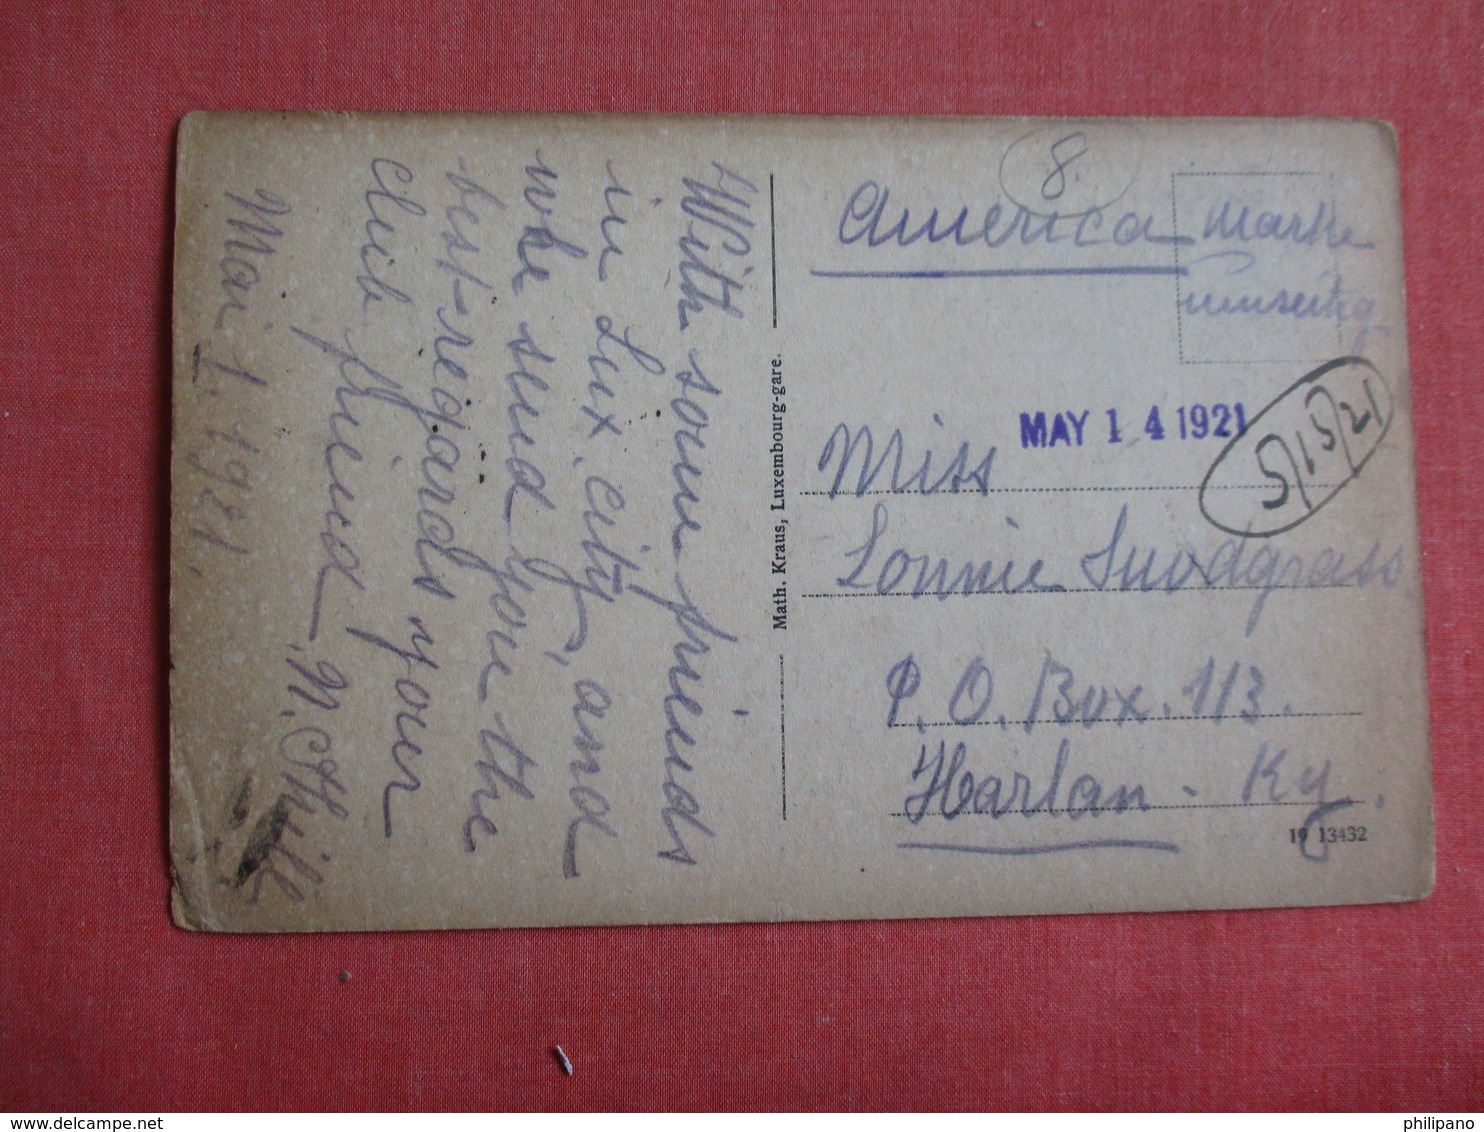 With some friends
in Lux. city, and
whe send you the
best-regards your
club friend
N. Thill
Mai 1. 1921.
Math. Kraus, Luxembourg-gare.
8.
America
Marke
umseitig
MAY 14 1921
12/5/15
Miss
Lonnie Snodgrass
P. O. Box. 113.
Harlan - Ky.
19 13432
philipano